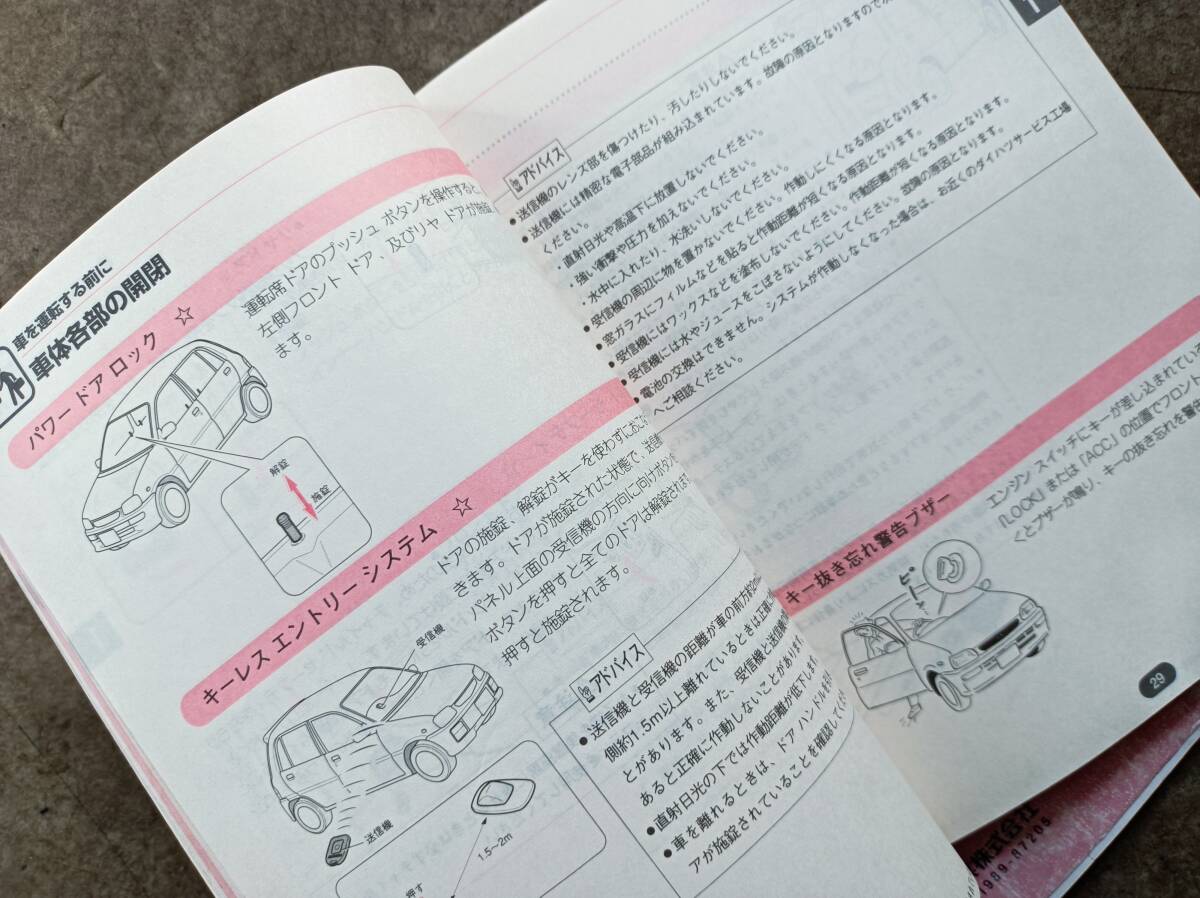 車を運転する前に
車体各部の開閉
パワー ドア ロック ☆
運転席ドアのプッシュ ボタンを操作すると、
左側フロント ドア、及びリヤ ドアが施錠
ます。
解錠
施錠
キーレス エントリー システム ☆
ドアの施錠、解錠がキーを使わずにおこな
きます。ドアが施錠された状態で、送信
パネル上面の受信機の方向に向けボタン
ボタンを押すと全てのドアは解錠されます
押すと施錠されます。
受信機
送信機
1.5～2m
押す
アドバイス
●送信機と受信機の距離が車の前方約2m
側約1.5m以上離れているときは正確に
とがあります。また、受信機と送信機
あると正確に作動しないことがあります
●直射日光の下では作動距離が低下します。
●車を離れるときは、ドア ハンドルを
アが施錠されていることを確認してくだ
1
アドバイス
●送信機のレンズ部を傷つけたり、汚したりしないでください。
●送信機には精密な電子部品が組み込まれています。故障の原因となりますので次
ください。
・直射日光や高温下に放置しないでください。
・強い衝撃や圧力を加えないでください。
・水中に入れたり、水洗いしないでください。
●受信機の周辺に物を置かないでください。作動しにくくなる原因となります。
●窓ガラスにフィルムなどを貼ると作動距離が短くなる原因となります。
●受信機にはワックスなどを塗布しないでください。作動距離が短くなる原因となります。
●受信機には水やジュースをこぼさないようにしてください。故障の原因となります。
●電池の交換はできません。システムが作動しなくなった場合は、お近くのダイハツサービス工場
へご相談ください。
キー抜き忘れ警告ブザー
エンジン スイッチにキーが差し込まれている
「LOCK」または「ACC」の位置でフロント
くとブザーが鳴り、キーの抜き忘れを警告
ピー
29
株式会社
1989-87205